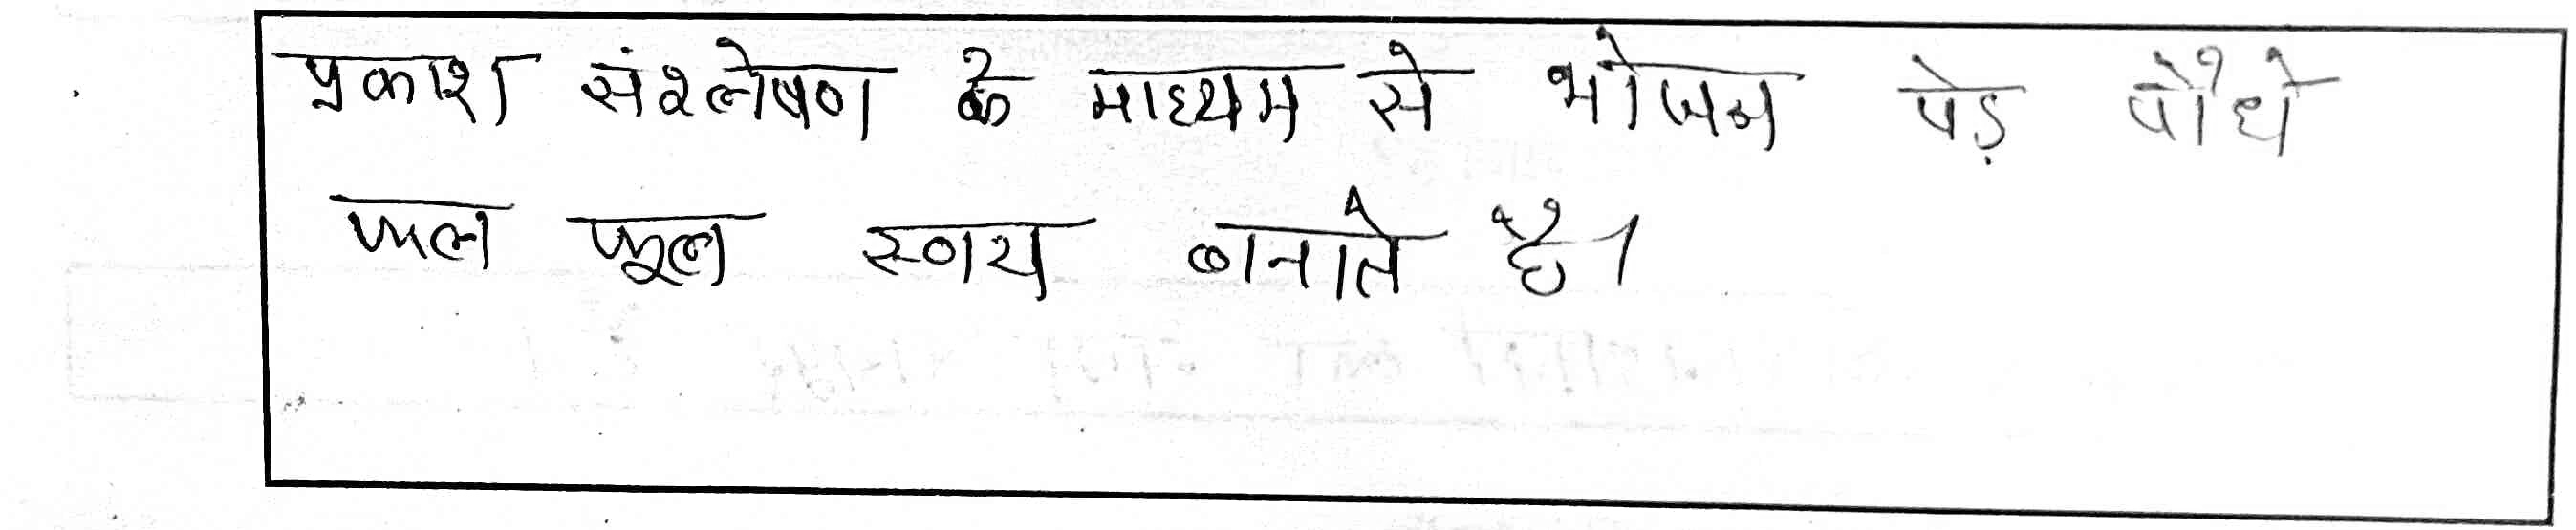 प्रकाश संश्लेषण के माध्यम से भोजन पेड़ पौधे
फल फूल स्वय बनाते है।